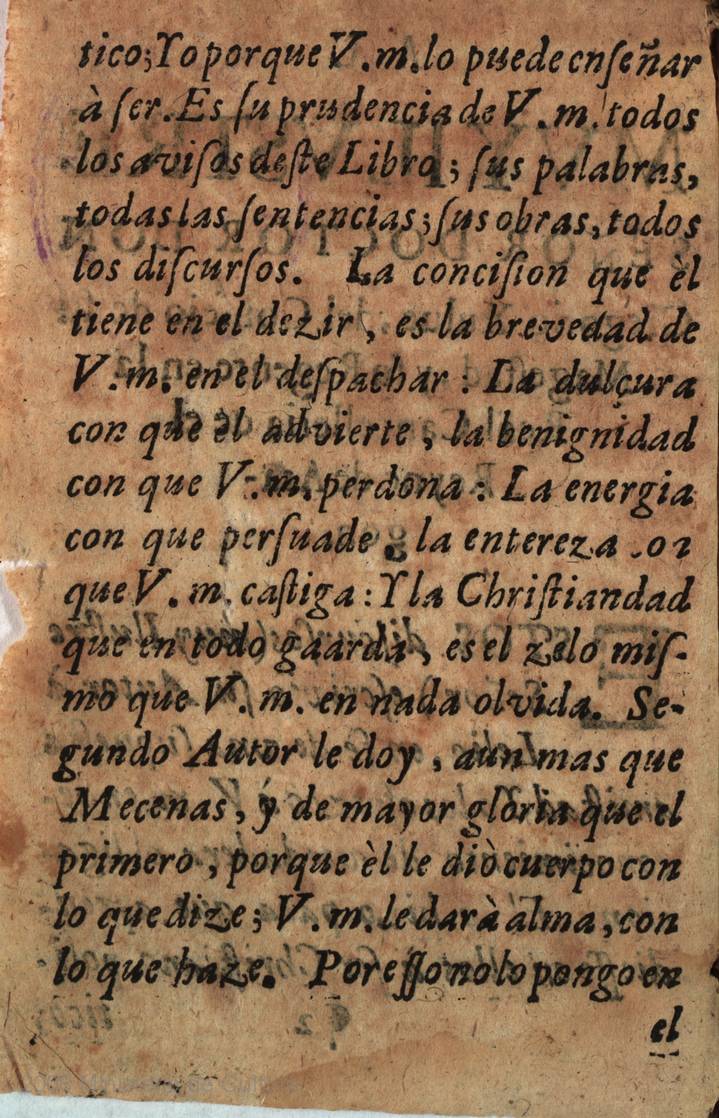 tico; Yo porque V. m. lo puede enſeñar
à ſer. Es ſu prudencia de V. m. todos
los aviſos deſte Libro; ſus palabras,
todas las ſentencias; ſus obras, todos
los diſcurſos. La conciſion que èl
tiene en el dezir, es la brevedad de
V. m. en el deſpachar: La dulçura
con que èl advierte, la benignidad
con que V. m. perdona: La energia
con que perſuade, la entereza
que V. m. caſtiga: Y la Chriſtiandad
que en todo gaarda, es el zelo miſ-
mo que V. m. en nada olvida. Se-
gundo Autor le doy, aun mas que
Mecenas, y de mayor gloria que el
primero, porque èl le diò cuerpo con
lo que dize; V. m. le darà alma, con
lo que haze. Por eſſo no lo pongo en
el